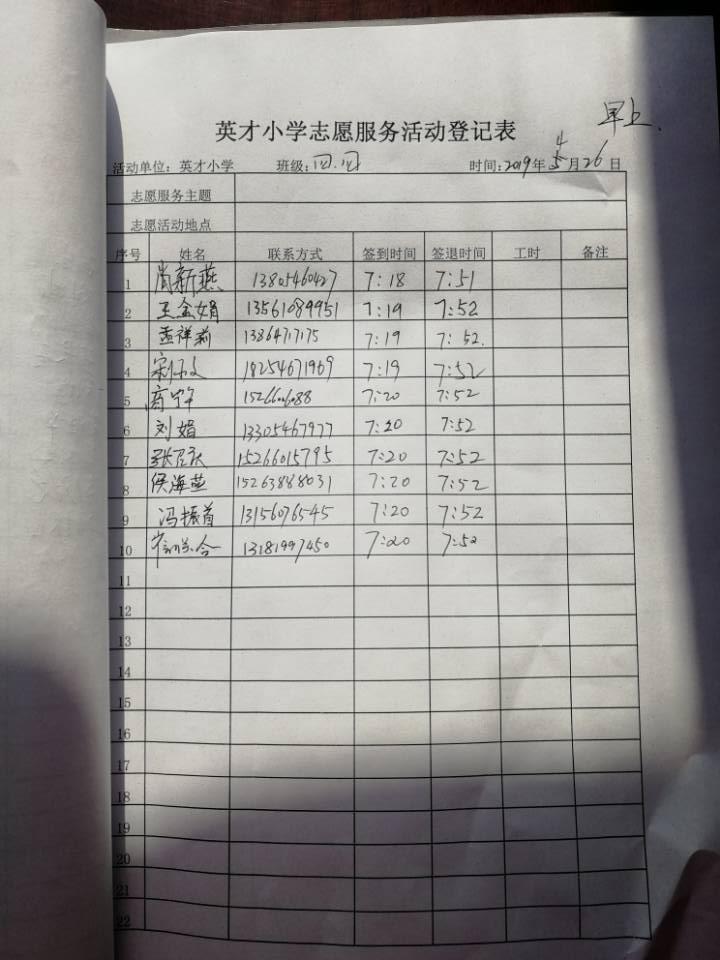 早上.
英才小学志愿服务活动登记表
活动单位：英才小学 班级：四.四 时间：2019年4月26日
志愿服务主题
志愿活动地点
序号 姓名 联系方式 签到时间 签退时间 工时 备注
1 尚新燕 13805460427 7:18 7:51
2 王金娟 13561089951 7:19 7:52
3 孟祥莉 13864717175 7:19 7:52.
4 18254671969 7:19 7:52
5 7:20 7:52
6 刘娟 13305467977 7:20 7:52
7 15266015795 7:20 7:52
8 侯海燕 15263888031 7:20 7:52
9 冯振首 13156076545 7:20 7:52
10 13181997450 7:20 7:52
11
12
13
14
15
16
17
18
19
20
21
22